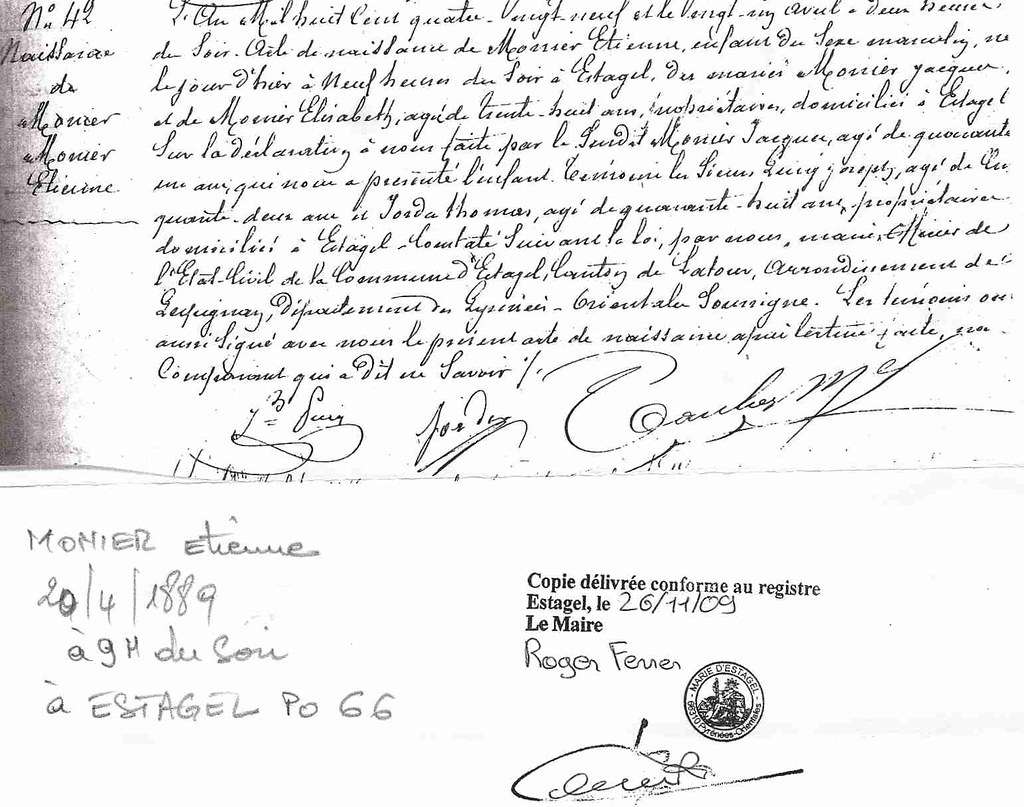 N° 42
Naissance
de
Monier
Monier
Etienne
L'An Mil huit Cent quatre-Vingt neuf et le Vingt-un Avril à deux heures
du Soir. Acte de naissance de Monier Etienne, enfant du Sexe masculin, né
le jour d'hier à Neuf heures du Soir à Estagel, des mariés Monier Jacques,
et de Monier Elisabeth, agée de trente-huit ans, propriétaires, domiciliés à Estagel
Sur la déclaration à nous faite par le Susdit Monier Jacques, agé de quarante
un ans, qui nous a présenté l'enfant. Témoins les Sieurs Puig joseph, agé de Cin
quante-deux ans et Jorda thomas, agé de quarante-huit ans, propriétaires
domiciliés à Estagel. Constaté Suivant la loi, par nous, maire, Officier de
l'Etat-Civil de la Commune d'Estagel, Canton de Latour, Arrondissement de
Perpignan, Département des Pyrénées-Orientales Soussigné. Les témoins ont
aussi Signé avec nous le présent acte de naissance après lecture faite, non
Comparant qui a dit ne Savoir /.
Jh Puig Jorda
MONIER etiênne
20/4/1889
à 9H du Soir
à ESTAGEL PO 66
Copie délivrée conforme au registre
Estagel, le 26/11/09
Le Maire
Roger Ferrer
MARIE D'ESTAGEL
66310 Pyrénées-Orientales